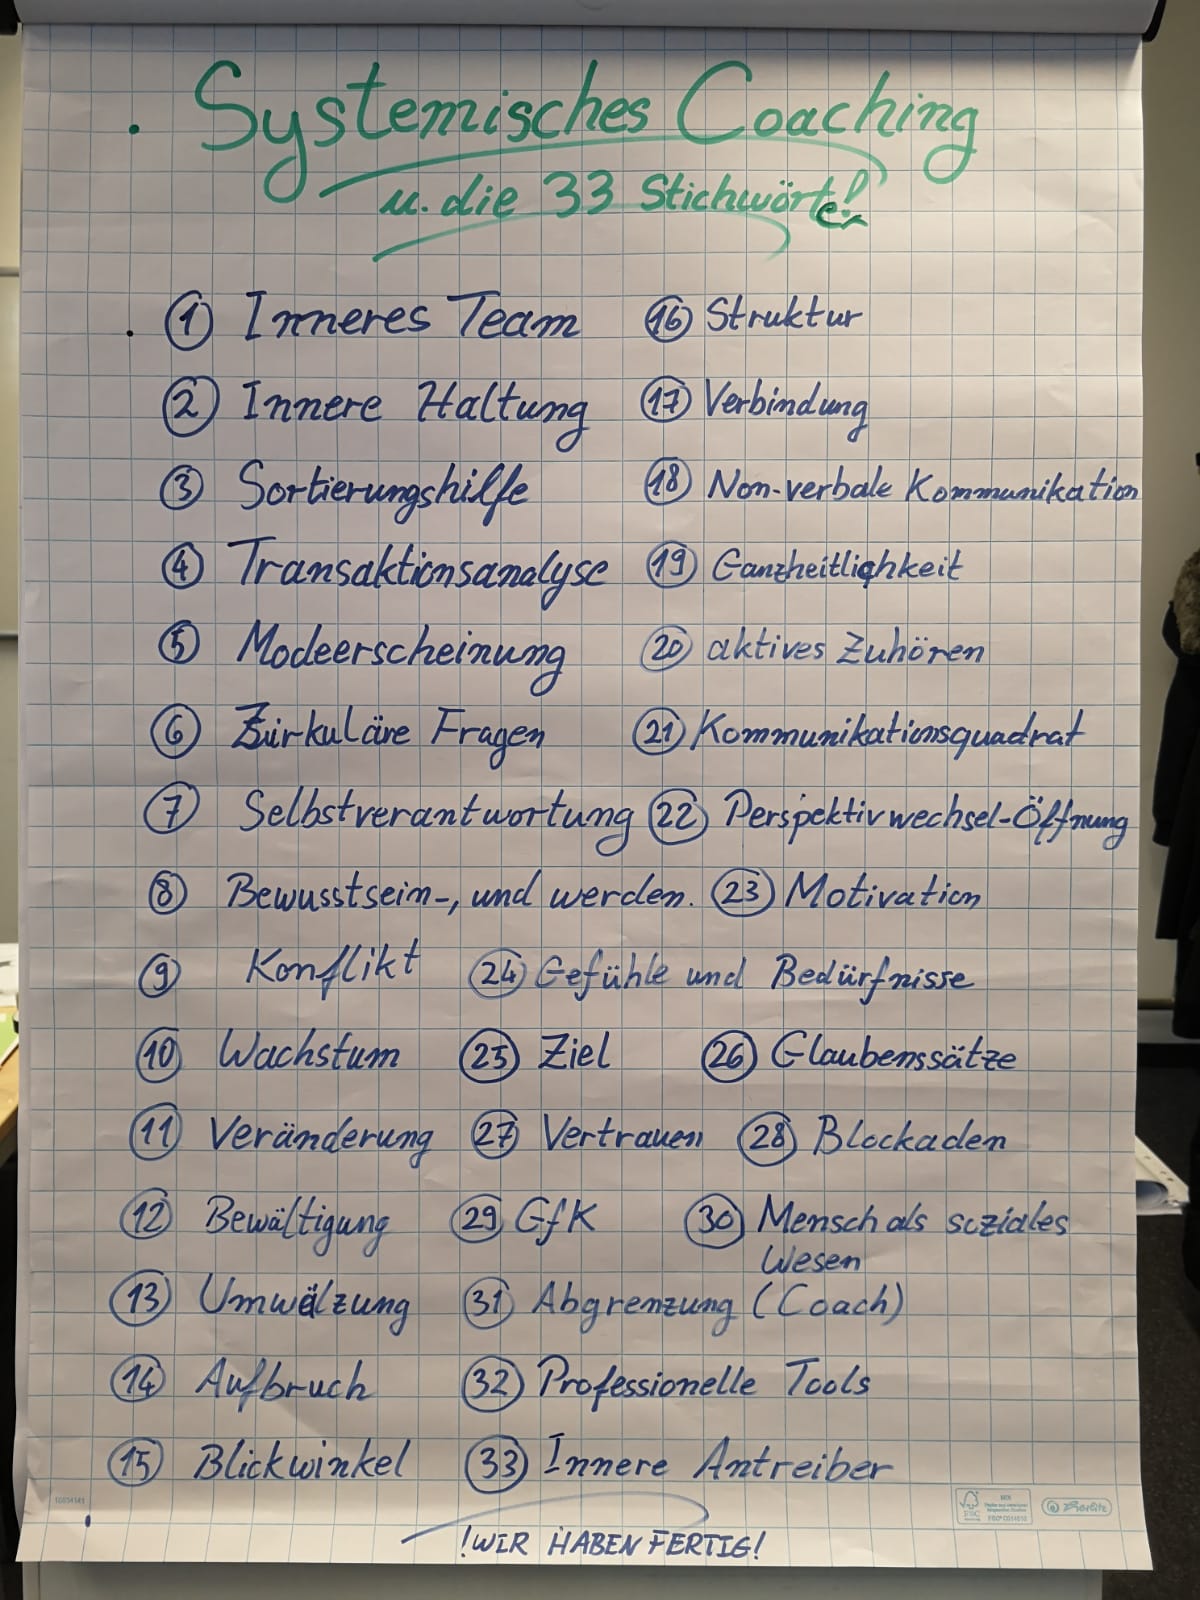 Systemisches Coaching
u. die 33 Stichwörter!
① Inneres Team
② Innere Haltung
③ Sortierungshilfe
④ Transaktionsanalyse
⑤ Modeerscheinung
⑥ Zirkuläre Fragen
⑦ Selbstverantwortung
⑧ Bewusstsein-, und werden.
⑨ Konflikt
⑩ Wachstum
⑪ Veränderung
⑫ Bewältigung
⑬ Umwälzung
⑭ Aufbruch
⑮ Blickwinkel
⑯ Struktur
⑰ Verbindung
⑱ Non-verbale Kommunikation
⑲ Ganzheitlichkeit
⑳ aktives Zuhören
㉑ Kommunikationsquadrat
㉒ Perspektivwechsel-Öffnung
㉓ Motivation
㉔ Gefühle und Bedürfnisse
㉕ Ziel
㉖ Glaubenssätze
㉗ Vertrauen
㉘ Blockaden
㉙ GfK
㉚ Mensch als soziales
Wesen
㉛ Abgrenzung (Coach)
㉜ Professionelle Tools
㉝ Innere Antreiber
!WIR HABEN FERTIG!